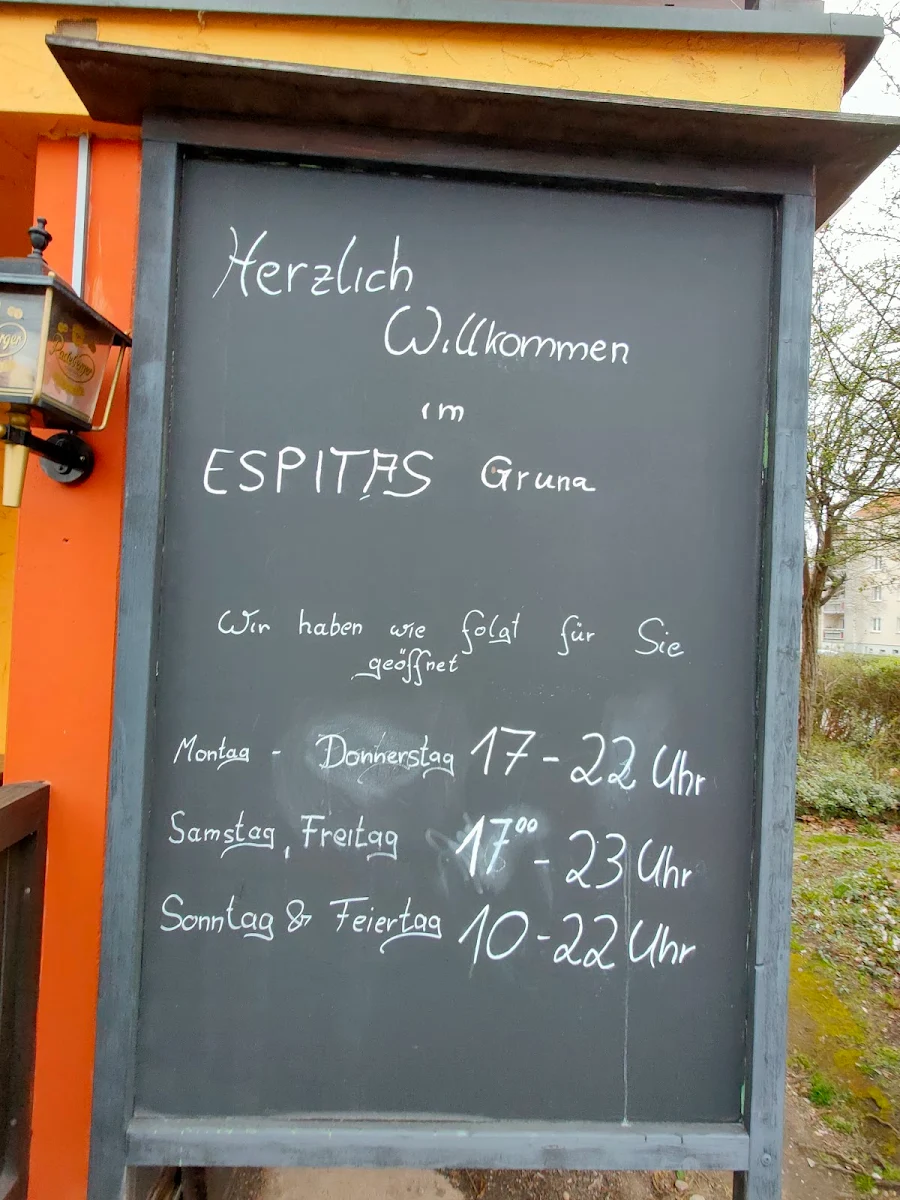 Herzlich
Willkommen
im
ESPITAS Gruna
Wir haben wie folgt für Sie
geöffnet
Montag - Donnerstag 17-22 Uhr
Samstag, Freitag 17⁰⁰ - 23 Uhr
Sonntag & Feiertag 10-22 Uhr
Radeberger